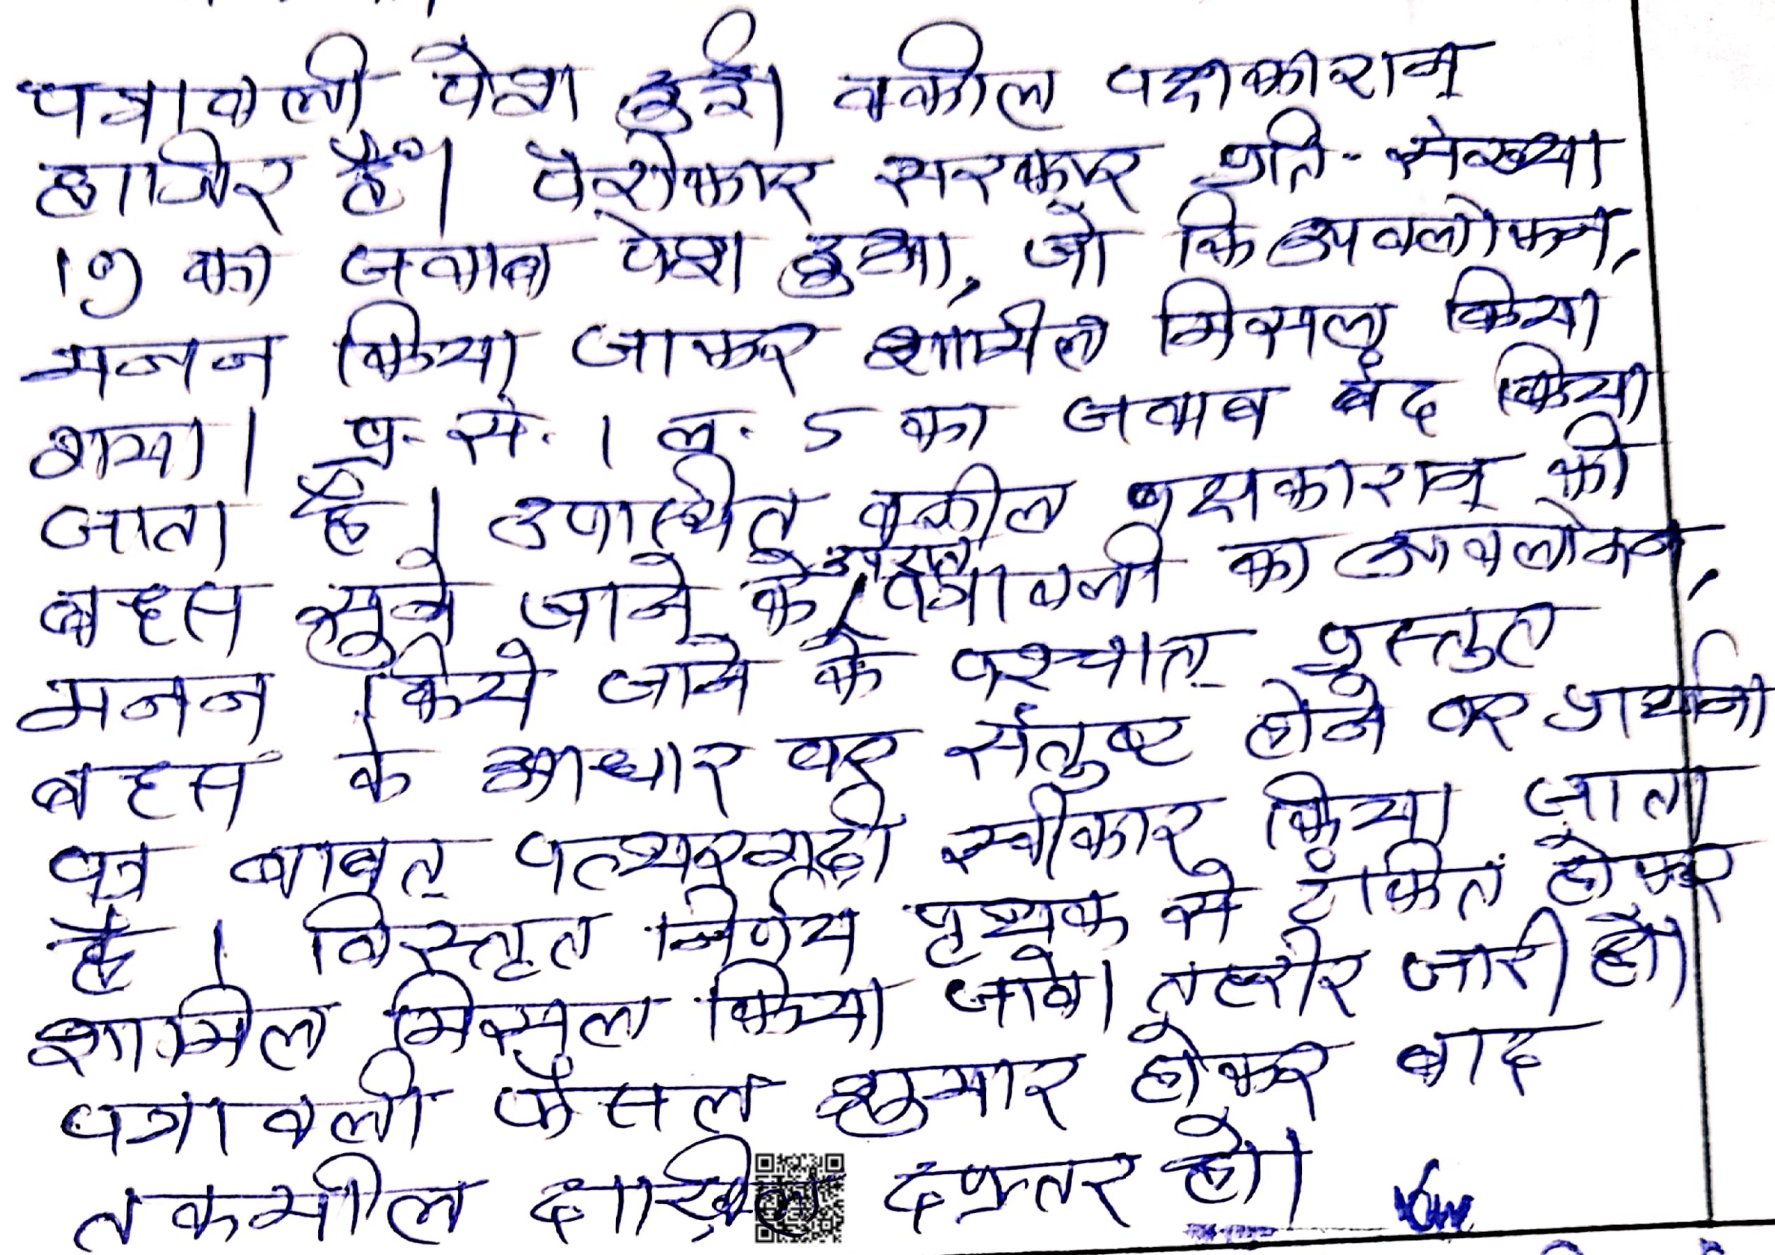 पत्रावली पेश हुई। वकील पक्षकारान्
हाजिर हैं। पैरोकार सरकार प्रति. संख्या
19 का जवाब पेश हुआ, जो कि अवलोकन,
मनन किया जाकर शामील मिसल किया
गया। प्र. सं. 1 ल. 5 का जवाब बंद किया
जाता है। उपास्थित वकील पक्षकारान् की
बहस सुने जाने के उपरान्त पत्रावली का अवलोकन,
मनन किये जाने के पश्चात् प्रस्तुत
बहस के आधार पर संतुष्ट होने पर प्रार्थना
पत्र बाबत् पत्थरगढी स्वीकार किया जाता
है। विस्तृत निर्णय पृथक से टंकित होकर
शामिल मिसल किया जावे। तहरीर जारी हो।
पत्रावली फैसल शुमार होकर बाद
तकमील दाखिल दफ्तर हो।